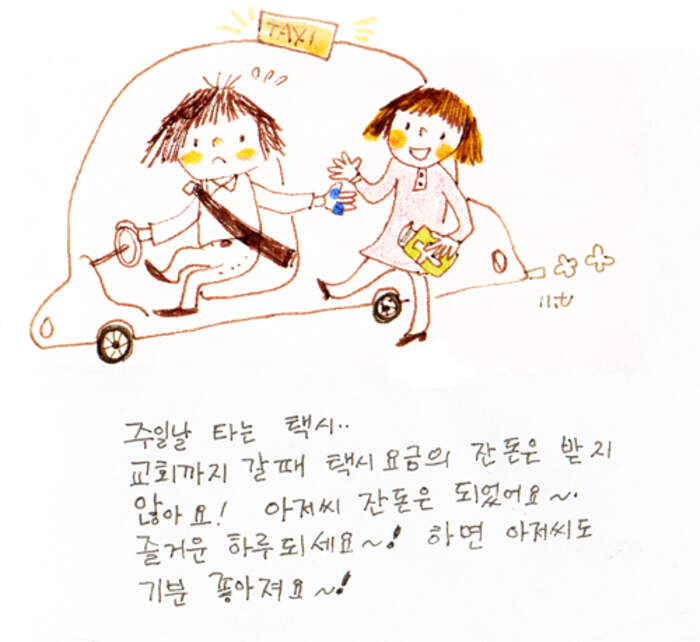 TAXI
주일날 타는 택시..
교회까지 갈때 택시요금의 잔돈은 받지
않아요! 아저씨 잔돈은 되었어요~.
즐거운 하루되세요~! 하면 아저씨도
기분 좋아져요~!